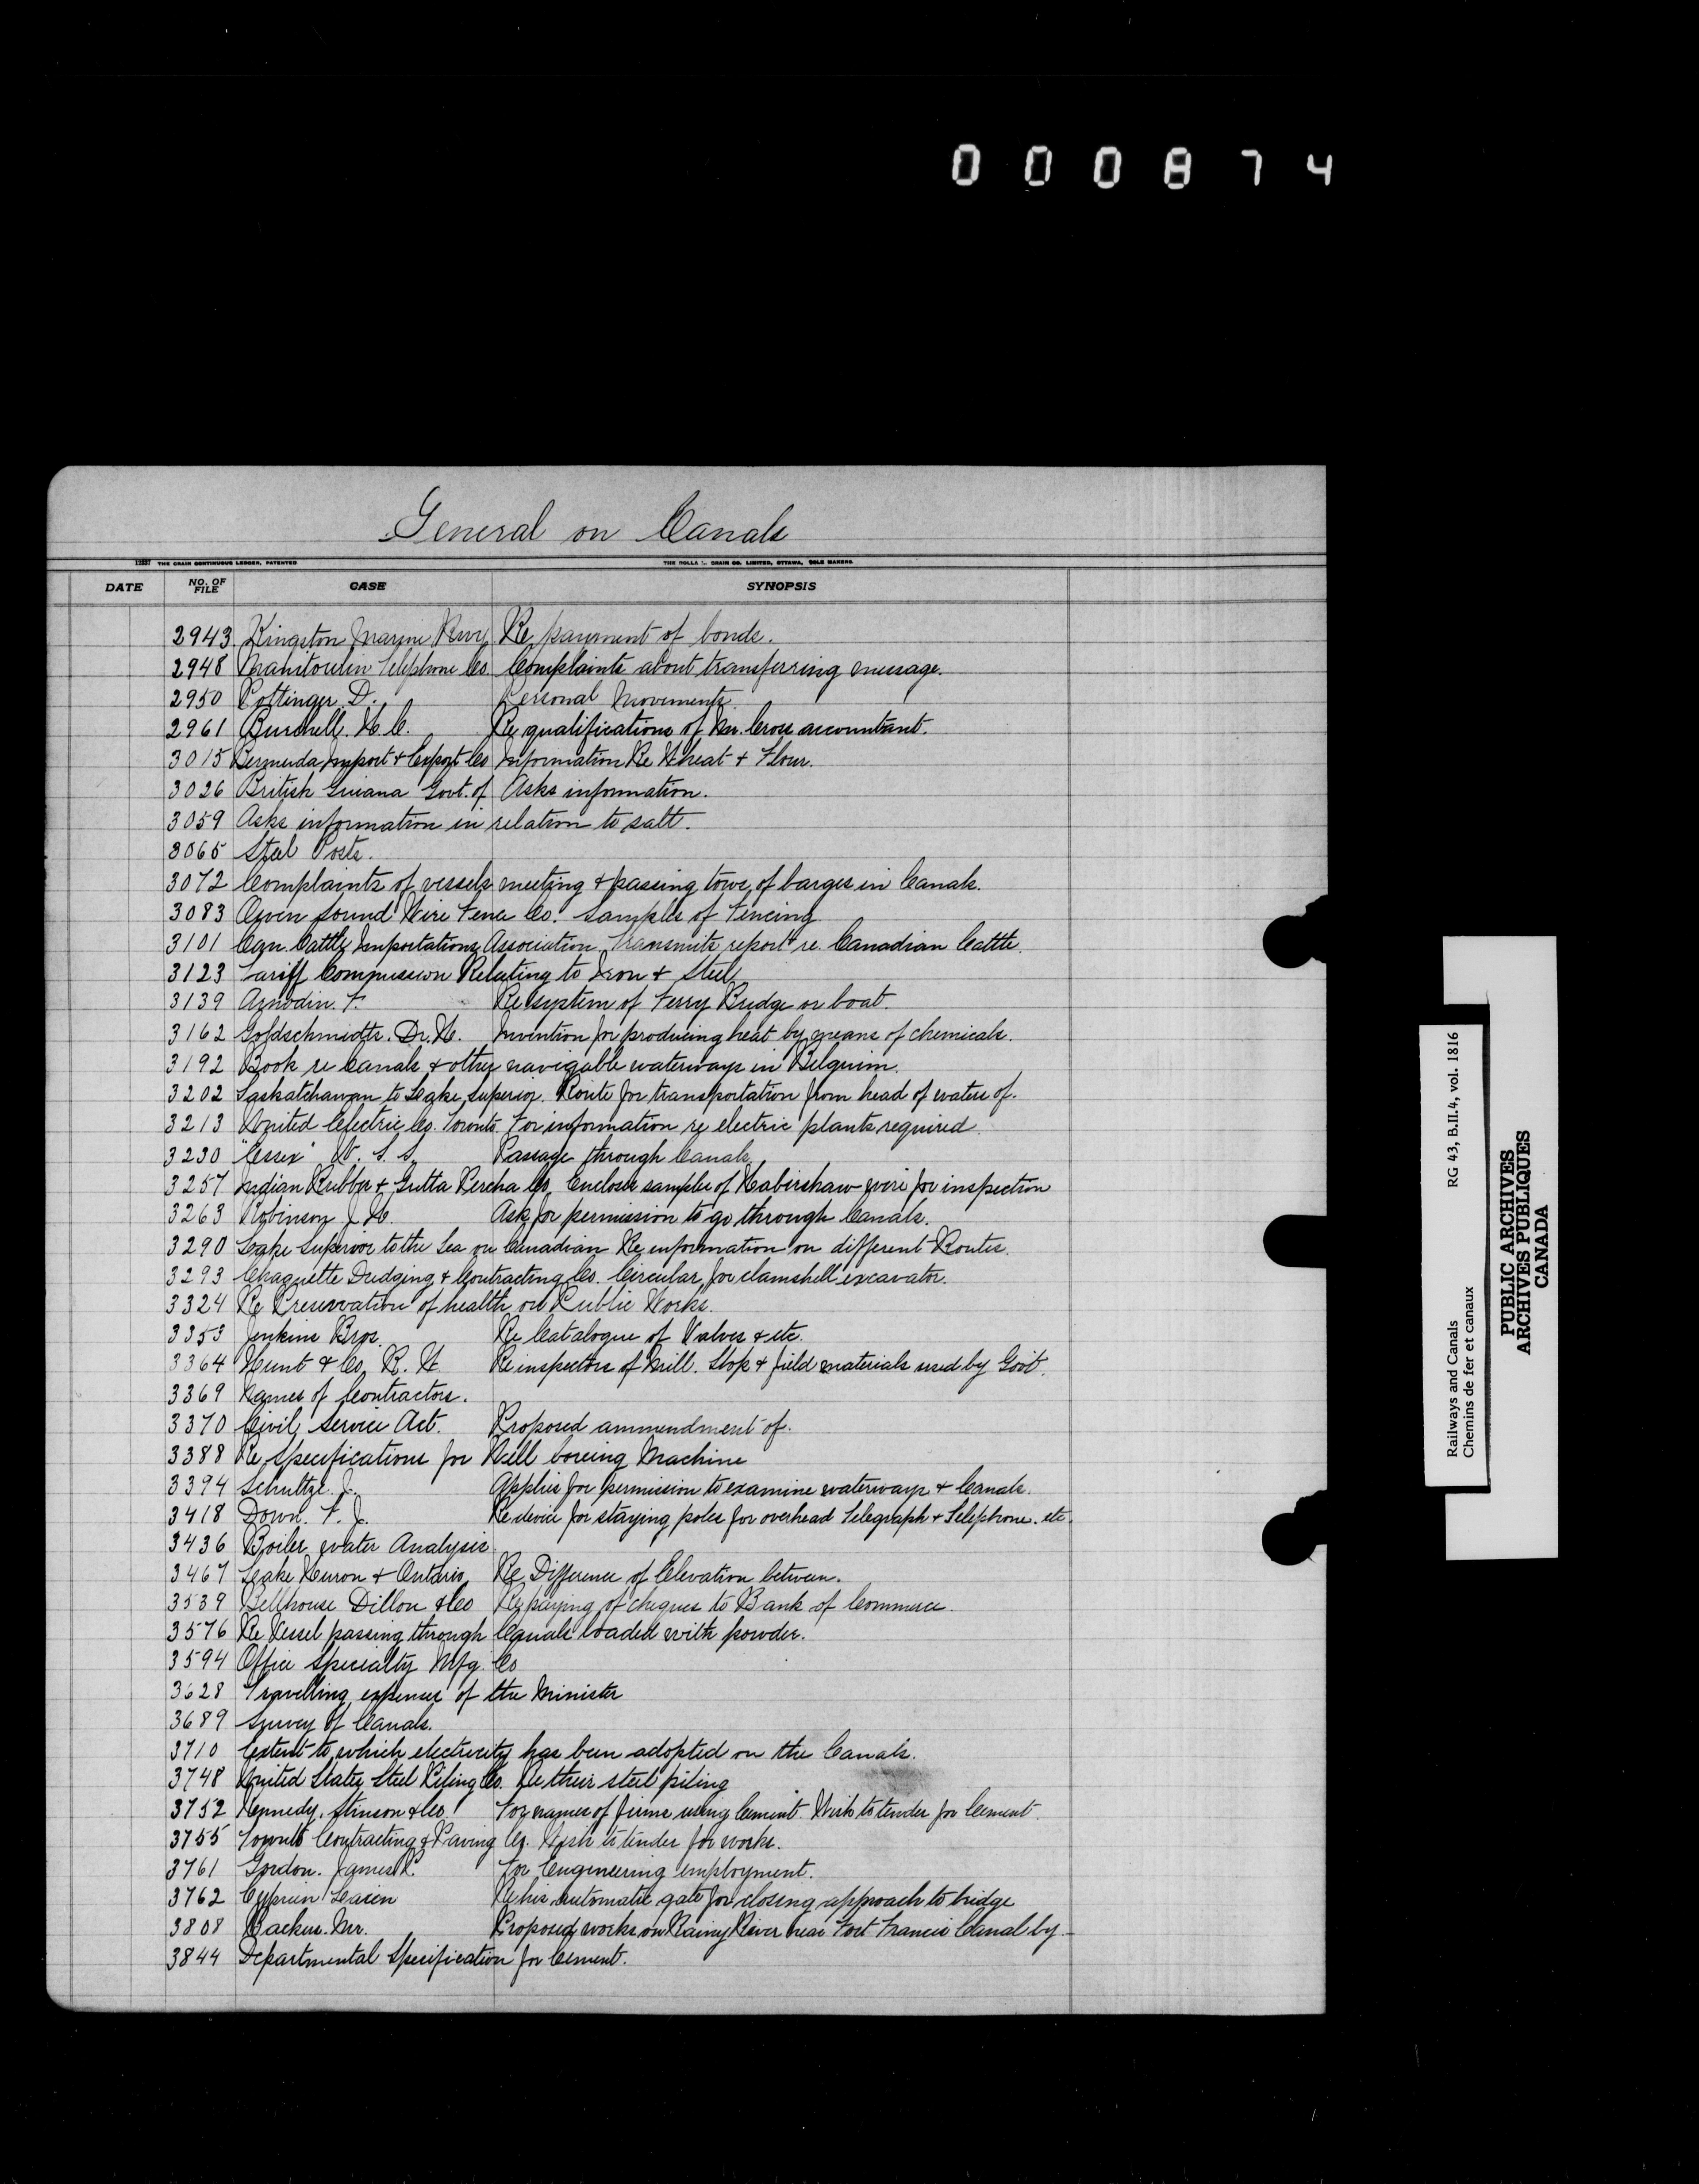 000874
General on Canals
12837 THE CRAIN CONTINUOUS LEDGER, PATENTED THE ROLLA L. CRAIN CO. LIMITED, OTTAWA, SOLE MAKERS.
DATE NO. OF FILE CASE SYNOPSIS
2943 Kingston Marine Rwy Re payment of bonds.
2948 Manitoulin Telephone Co. Complaints about transferring message.
2950 Pottinger. D. Personal Movements.
2961 Burchell. H. C. Re qualifications of Mr. Cross accountant.
3015 Bermuda Import & Export Co Information Re Wheat & Flour.
3026 British Guiana Govt. of Asks information.
3059 Asks information in relation to salt.
3065 Steel Posts.
3072 Complaints of vessels meeting & passing tows of barges in Canals.
3083 Owen Sound Wire Fence Co. Samples of Fencing
3101 Cgn. Cattle Importations Association Transmits report re. Canadian Cattle.
3123 Tariff Commission Relating to Iron & Steel
3139 Arnodin. F. Re system of Ferry Bridge or boat.
3162 Goldschmidts. Dr. H. Invention for producing heat by means of chemicals.
3192 Book re Canals & other navigable waterways in Belguim.
3202 Saskatchawan to Lake Superior. Route for transportation from head of waters of.
3213 United Electric Co. Toronto. For information re electric plants required.
3230 "Essex" U. S. S. Passage through Canals.
3257 Indian Rubber & Gutta Percha Co. Encloses samples of Habirshaw wire for inspection
3263 Robinson J. H. Ask for permission to go through Canals.
3290 Lake Superior to the Sea on Canadian Re information on different Routes.
3293 Chaquette Dudging & Contracting Co. Circular for clamshell excavator.
3324 Re Preservation of health on Public Works.
3353 Jenkins Bros. Re Catalogue of Valves & etc.
3364 Hunt & Co, R. W. Re inspectors of Mill. Shop & field materials used by Gov't.
3369 Names of Contractors.
3370 Civil Service Act. Proposed ammendment of.
3388 Re Specifications for Well boreing Machine
3394 Schultze. J. Applies for permission to examine waterways & Canals.
3418 Down. F. J. Re device for staying poles for overhead Telegraph & Telephone. etc.
3436 Boiler water Analysis.
3467 Lake Huron & Ontario Re Difference of Elevation between.
3539 Bellhouse Dillon & Co Re paying of cheques to Bank of Commerce.
3576 Re Vessel passing through Canals loaded with powder.
3594 Office Specialty Mfg. Co
3628 Travelling expenses of the Minister
3689 Survey of Canals.
3710 Extent to which electricity has been adopted on the Canals.
3748 United States Steel Piling Co. Re their steel piling
3752 Kennedy, Stinson & Co. For names of firms using Cement. Wish to tender for Cement.
3755 Toronto Contracting & Paving Co. Wish to tender for works.
3761 Gordon. James R. For Engineering employment.
3762 Cyprien Re his automatic gate for closing approach to bridge
3808 Backus. Mr. Proposed works on Rainy River near Fort Francis Canal by.
3844 Departmental Specification for Cement.
Railways and Canals RG 43, B.II.4, vol. 1816
Chemins de fer et canaux
PUBLIC ARCHIVES
ARCHIVES PUBLIQUES
CANADA